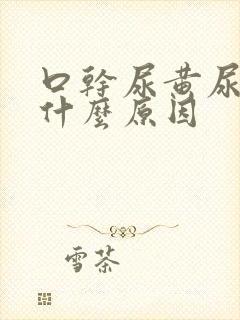 口幹尿黄尿
什麼原因
雪茶